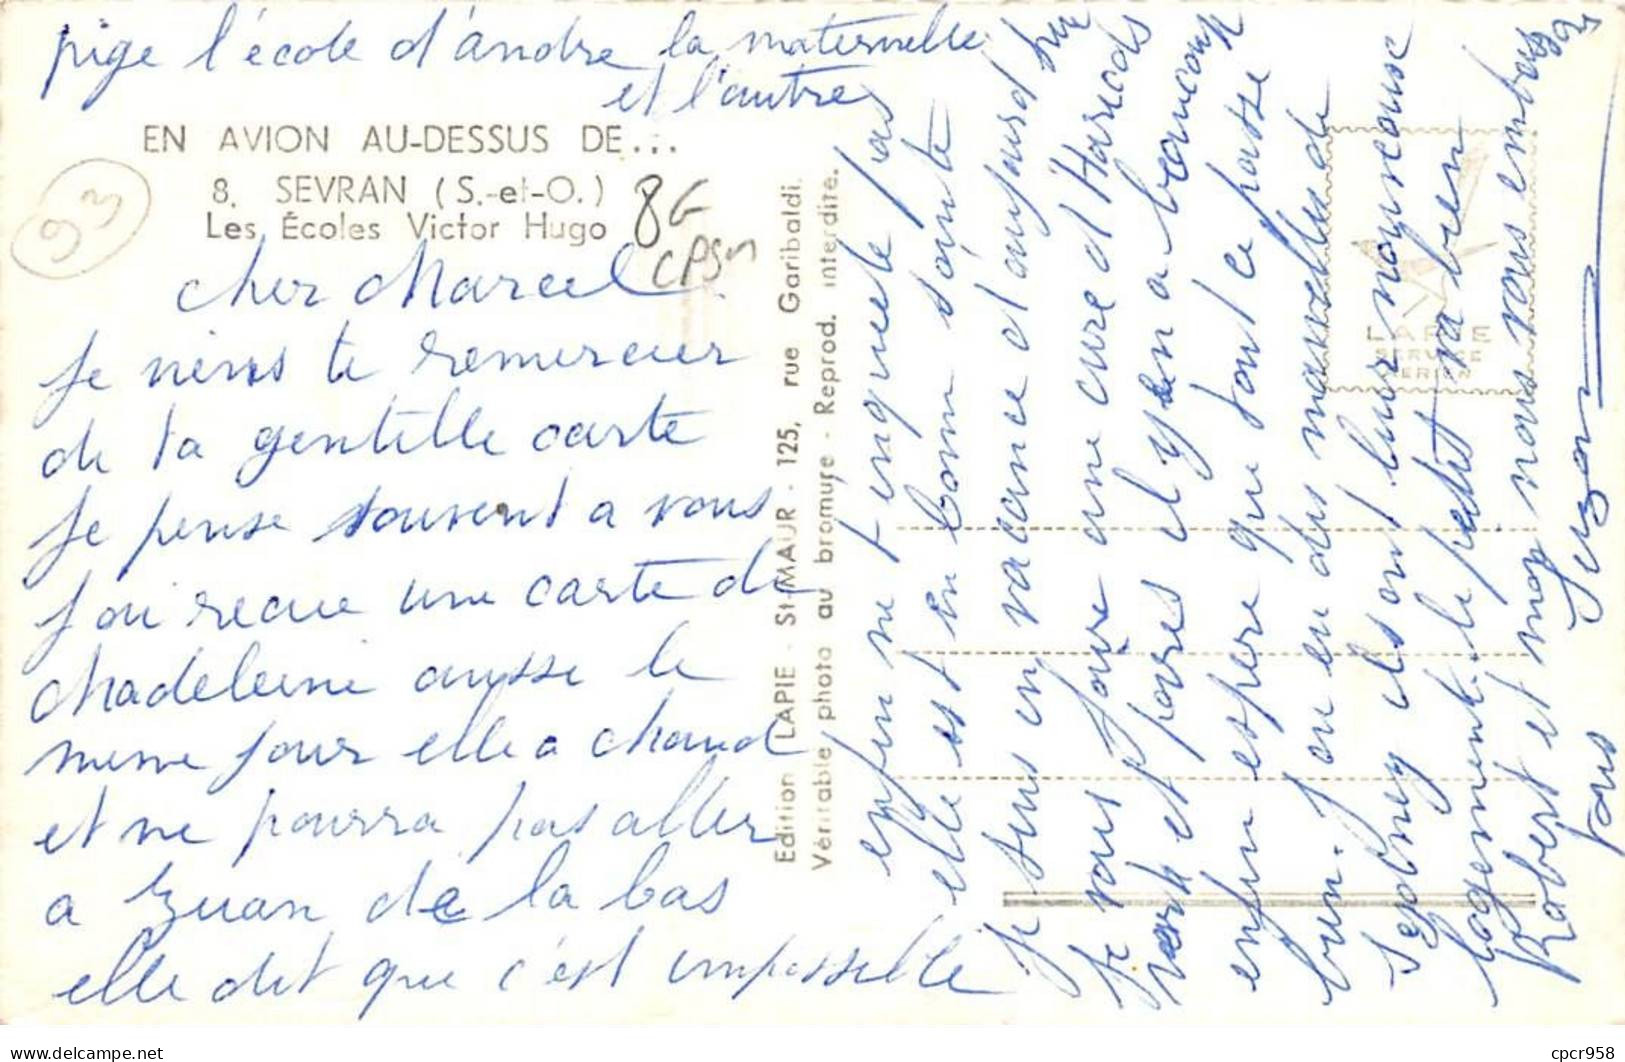 pige l'école d'andre la maternelle
et l'autre
EN AVION AU-DESSUS DE...
8. SEVRAN (S.-et-O.)
Les Écoles Victor Hugo
93
8G
CPSM
cher Marcel
je viens te remercier
de ta gentille carte
je pense souvent a vous
j'ai recue une carte de
Madeleine ausse le
meme jour elle a chaud
et ne pourra pas aller
a de la bas
elle dit que c'est imposselle
Edition LAPIE - St-MAUR - 125, rue Garibaldi.
Véritable photo au bromure - Reprod. interdite.
enfin ne t'enquete pas
elle est en bonn sante
Je suis en vacance d'aujourd hui
Je vous faire une cure d'Haricots
vert et poires il y en a beaucoup
enfin espere que tout ce passe
bien. J'ai eu des nouvelles de
ils ont leur nouveaux
logement. le petit va bien
Robert et moi nous vous embrassons
tous
Suzon
LAPIE
SERVICE
AERIEN
cpcr958